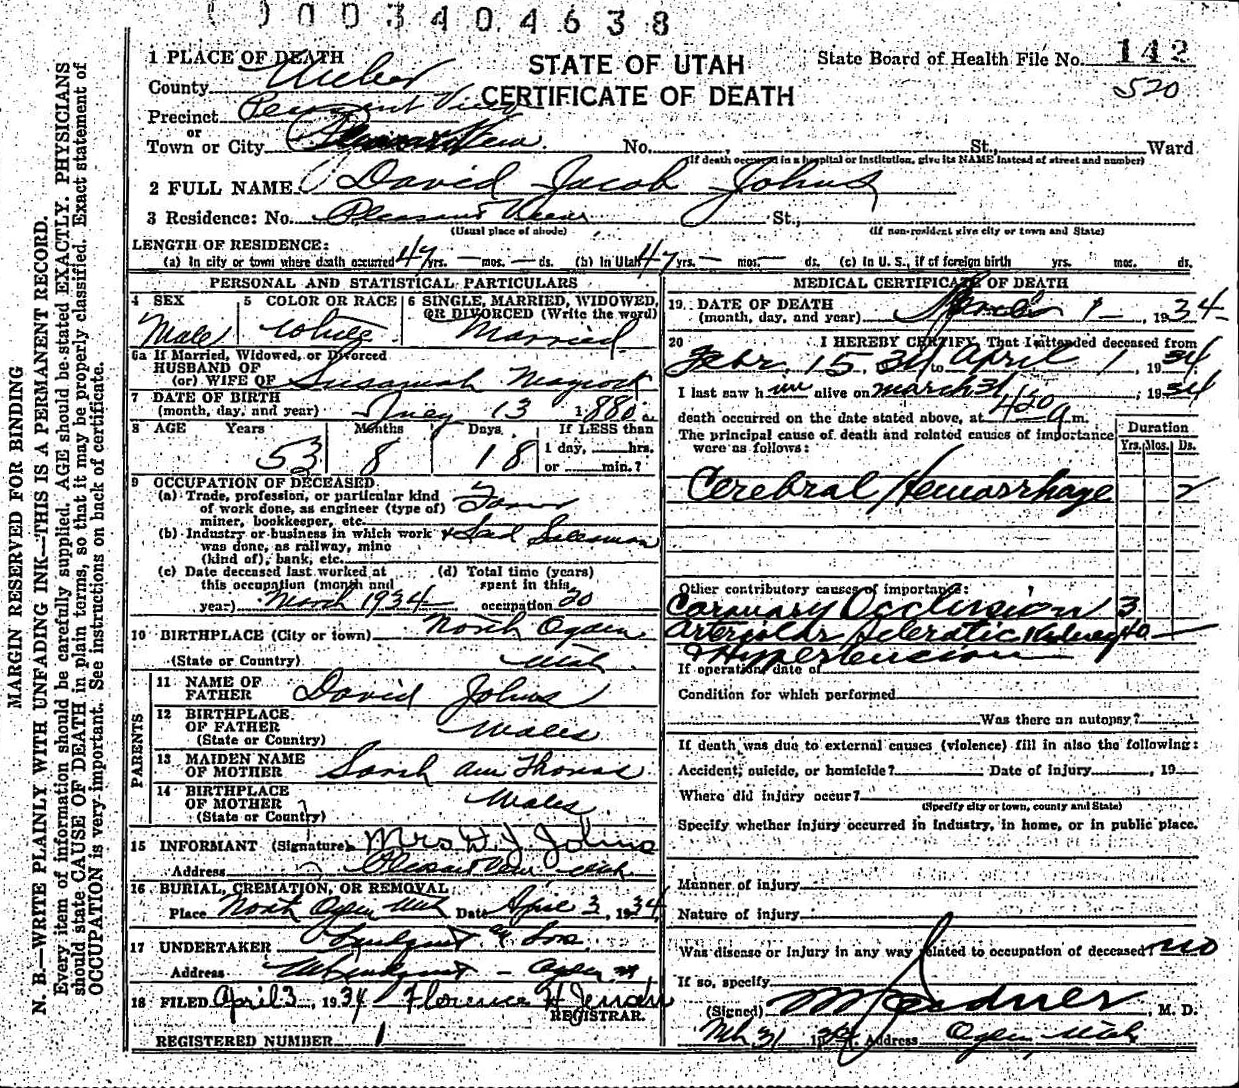 003404638
1 PLACE OF DEATH
STATE OF UTAH
CERTIFICATE OF DEATH
State Board of Health File No. 142
520
County Weber
Precinct Pleasant View
or
Town or City Pleasant View No. St., Ward
(If death occurred in a hospital or institution, give its NAME instead of street and number)
2 FULL NAME David Jacob Johns
3 Residence: No. Pleasant View St.,
(Usual place of abode) (If non-resident give city or town and State)
LENGTH OF RESIDENCE:
(a) In city or town where death occurred 47 yrs. — mos. — ds. (b) In Utah 47 yrs. — mos. — ds. (c) In U. S., if of foreign birth yrs. mos. ds.
PERSONAL AND STATISTICAL PARTICULARS
4 SEX 5 COLOR OR RACE 6 SINGLE, MARRIED, WIDOWED, OR DIVORCED (Write the word)
Male White Married
6a If Married, Widowed, or Divorced
HUSBAND OF
(or) WIFE OF Susannah Maycock
7 DATE OF BIRTH
(month, day, and year) 13 1880
8 AGE Years Months Days If LESS than
53 8 18 1 day, hrs.
or min.?
9 OCCUPATION OF DECEASED
(a) Trade, profession, or particular kind
of work done, as engineer (type of)
miner, bookkeeper, etc.
(b) Industry or business in which work
was done, as railway, mine
(kind of), bank, etc. Salesman
(c) Date deceased last worked at (d) Total time (years)
this occupation (month and spent in this
year) March 1934 occupation 20
10 BIRTHPLACE (City or town) North Ogden
(State or Country) Utah
PARENTS
11 NAME OF
FATHER David Johns
12 BIRTHPLACE
OF FATHER Wales
(State or Country)
13 MAIDEN NAME
OF MOTHER Sarah Ann Thomas
14 BIRTHPLACE
OF MOTHER Wales
(State or Country)
15 INFORMANT (Signature) Mrs D. J. Johns
Address Pleasant View Utah
16 BURIAL, CREMATION, OR REMOVAL
Place North Ogden Utah Date April 3, 1934
17 UNDERTAKER Lindquist & Sons
Address Ogden
18 FILED April 3, 1934 Florence H Jensen
REGISTRAR.
REGISTERED NUMBER 1
MEDICAL CERTIFICATE OF DEATH
19 DATE OF DEATH
(month, day, and year) April 1 — , 1934
20 I HEREBY CERTIFY, That I attended deceased from
Febr. 15, 34 to April 1, 1934
I last saw him alive on March 31, 1934
death occurred on the date stated above, at 420 a m.
The principal cause of death and related causes of importance
were as follows:
Duration
Yrs. Mos. Ds.
Cerebral Hemorrhage
Other contributory causes of importance:
Coronary Occlusion 3
Arteriolar Sclerotic Kidney 10 —
& Hypertension
If operation, date of
Condition for which performed
Was there an autopsy?
If death was due to external causes (violence) fill in also the following:
Accident, suicide, or homicide? Date of injury , 19
Where did injury occur?
(Specify city or town, county and State)
Specify whether injury occurred in industry, in home, or in public place.
Manner of injury
Nature of injury
Was disease or injury in any way related to occupation of deceased? no
If so, specify
(Signed) , M. D.
Mch 31 1934. Address Ogden, Utah
MARGIN RESERVED FOR BINDING
N. B.—WRITE PLAINLY, WITH UNFADING INK—THIS IS A PERMANENT RECORD.
Every item of information should be carefully supplied. AGE should be stated EXACTLY. PHYSICIANS
should state CAUSE OF DEATH in plain terms, so that it may be properly classified. Exact statement of
OCCUPATION is very important. See instructions on back of certificate.